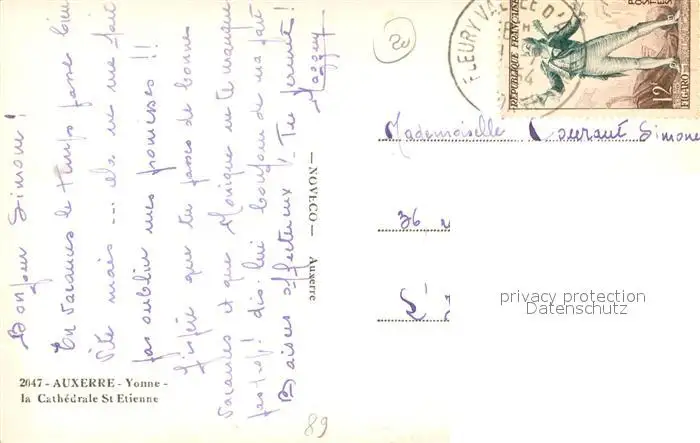 Bonjour Simone !
En vacances le temps passe bien
vite mais ... cela ne me fait
pas oublier mes promesses !!
J'espère que tu passes de bonnes
vacances et que Monique ne te manque
pas trop ! dis-lui bonjour de ma part
Baisers affectueux !
Mademoiselle Courant Simone
36
2047 - AUXERRE - Yonne -
la Cathédrale St Etienne
— NOVECO — Auxerre
FLEURY VALLÉE D'A
REPUBLIQUE FRANÇAISE
POSTES
12F
FIGARO
20
89
privacy protection
Datenschutz